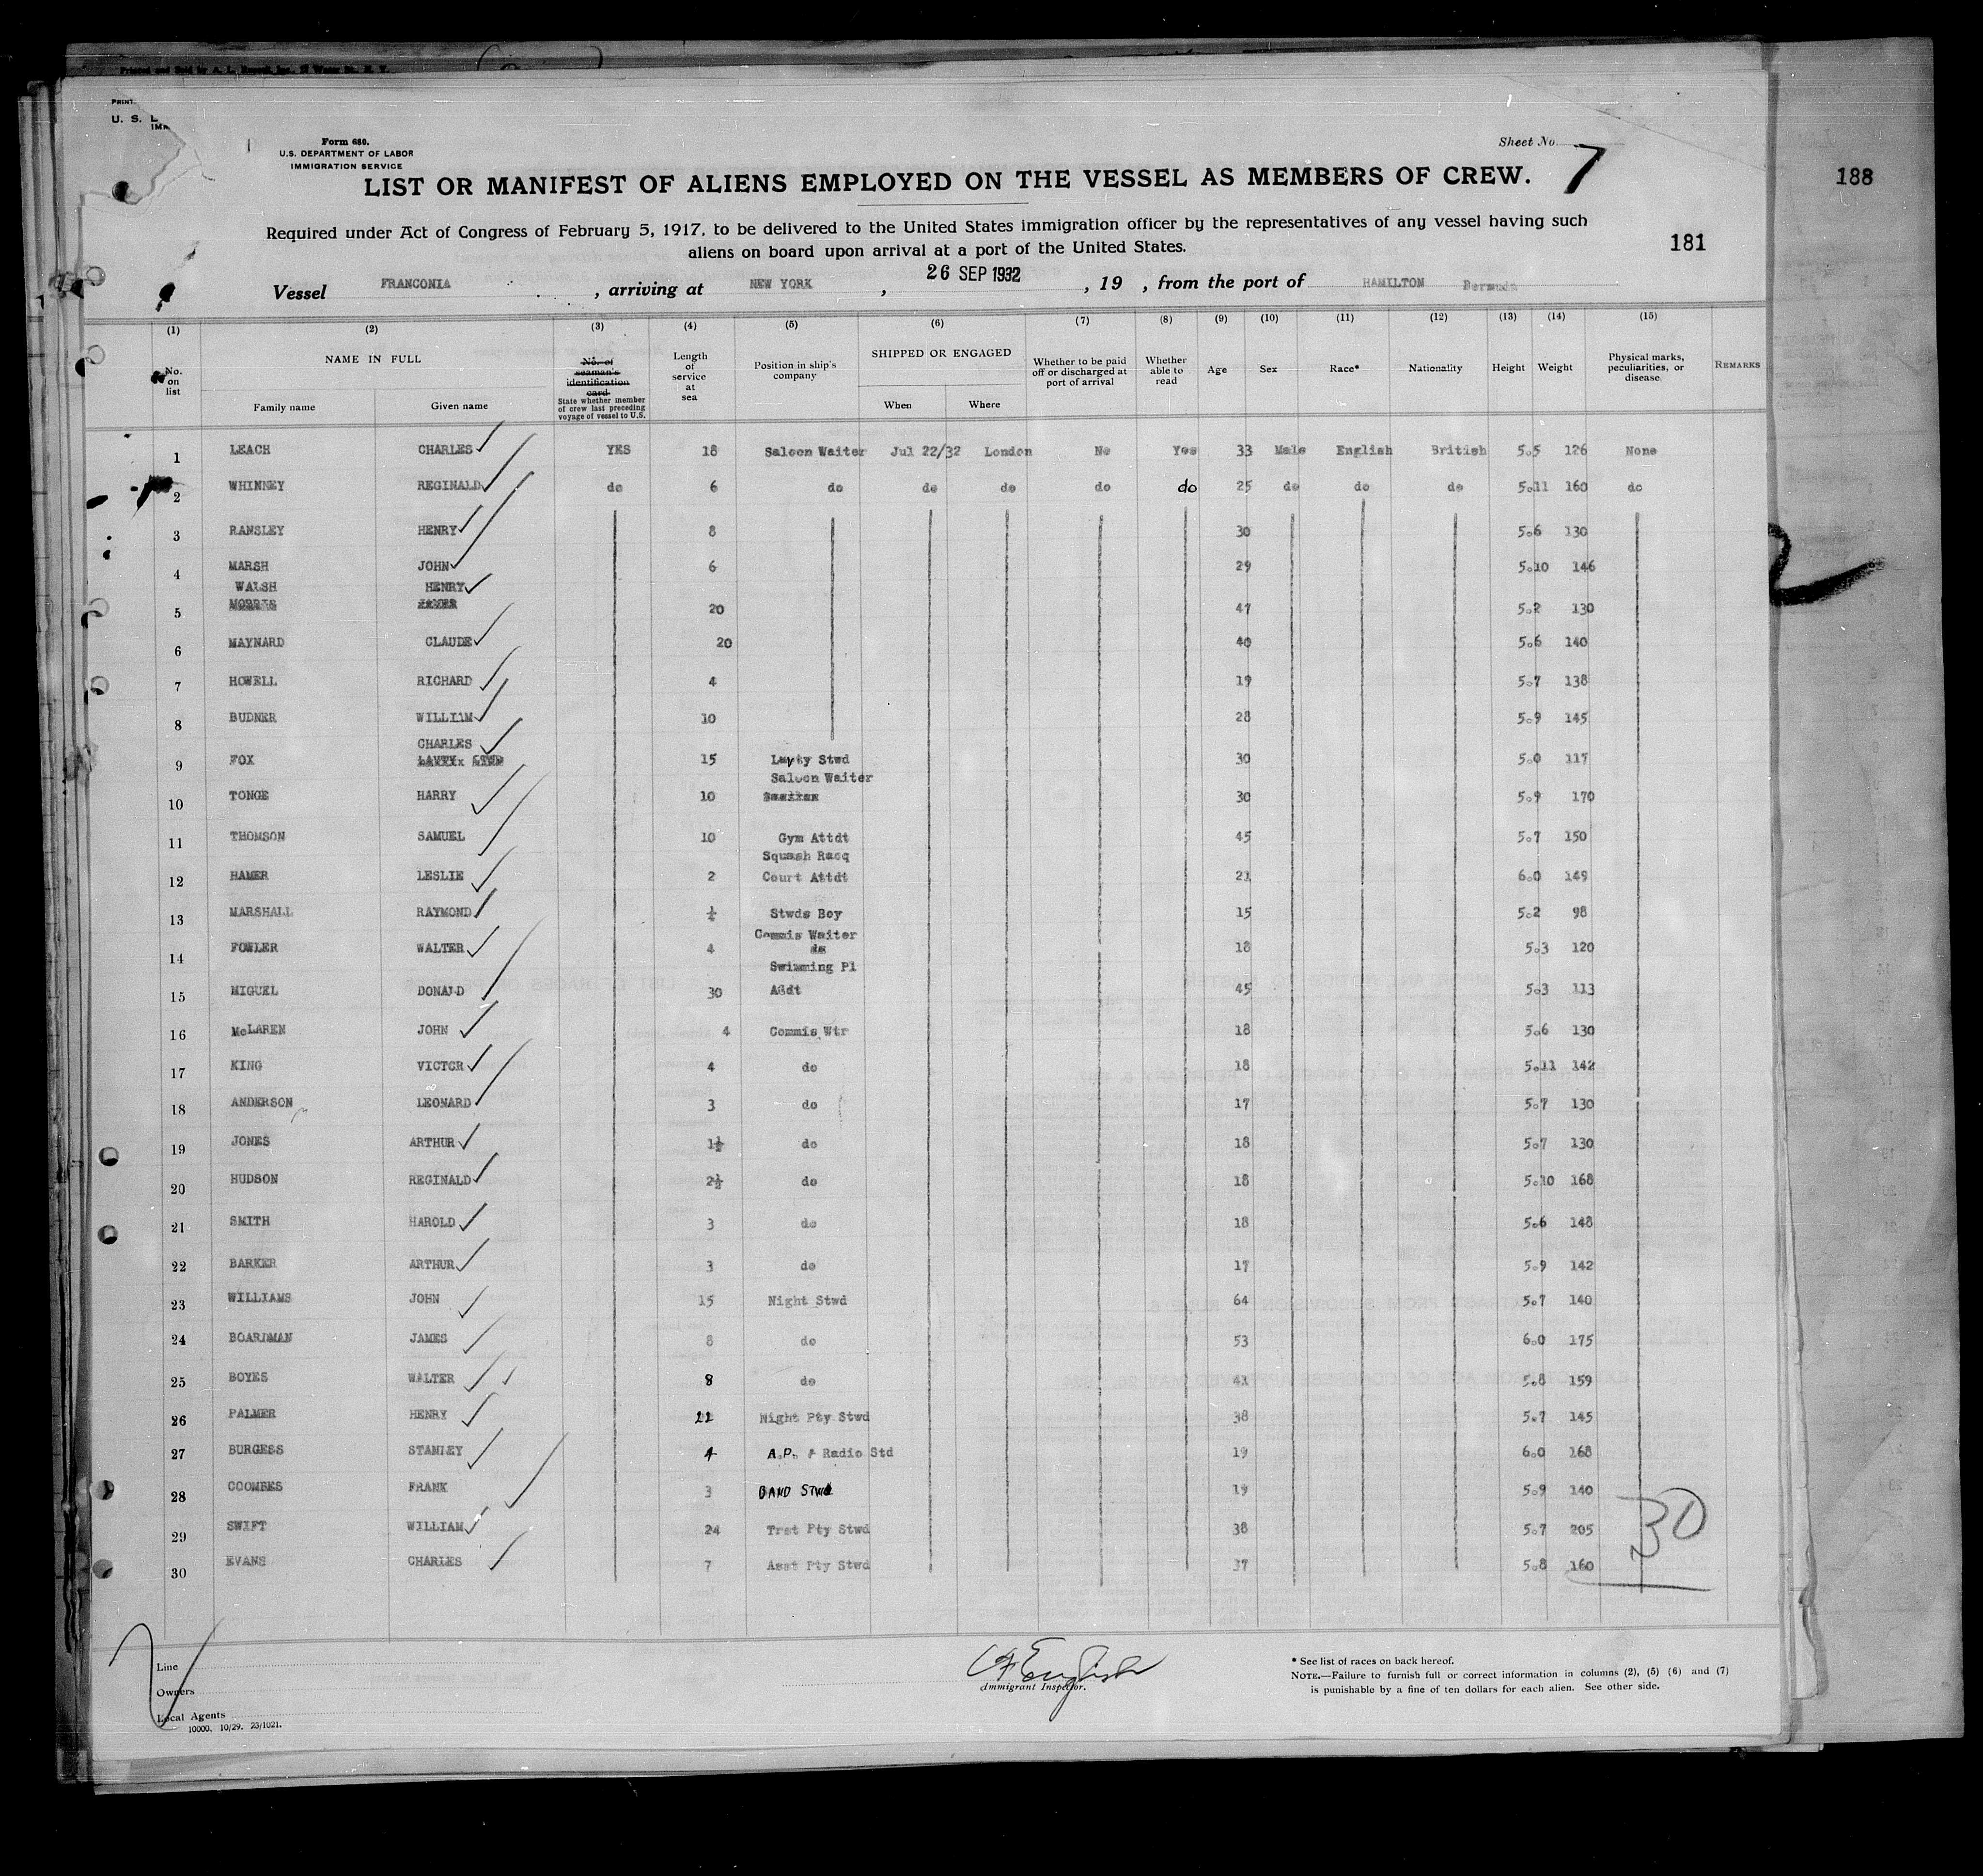 Printed and Sold by A. L. Russell, Inc., Water St. N. Y.
PRINT
U. S. L
IMM
Form 680.
U.S. DEPARTMENT OF LABOR
IMMIGRATION SERVICE
Sheet No. 7
LIST OR MANIFEST OF ALIENS EMPLOYED ON THE VESSEL AS MEMBERS OF CREW.
188
Required under Act of Congress of February 5, 1917, to be delivered to the United States immigration officer by the representatives of any vessel having such
aliens on board upon arrival at a port of the United States.
181
Vessel FRANCONIA , arriving at NEW YORK , 26 SEP 1932 , 19 , from the port of HAMILTON Bermuda
(1) (2) (3) (4) (5) (6) (7) (8) (9) (10) (11) (12) (13) (14) (15)
No. on list
NAME IN FULL
Family name Given name
No. of seaman's identification card
State whether member of crew last preceding voyage of vessel to U.S.
Length of service at sea
Position in ship's company
SHIPPED OR ENGAGED
When Where
Whether to be paid off or discharged at port of arrival
Whether able to read
Age Sex Race* Nationality Height Weight
Physical marks, peculiarities, or disease
REMARKS
1 LEACH CHARLES YES 18 Saloon Waiter Jul 22/32 London No Yes 33 Male English British 5.5 126 None
2 WHINNEY REGINALD do 6 do do do do do 25 do do do 5.11 160 do
3 RANSLEY HENRY 8 30 5.6 130
4 MARSH JOHN 6 29 5.10 146
WALSH HENRY
5 MORRIS 20 47 5.2 130
6 MAYNARD CLAUDE 20 40 5.6 140
7 HOWELL RICHARD 4 19 5.7 138
8 BUDNER WILLIAM 10 28 5.9 145
CHARLES
9 FOX LAVTY STWD 15 Lavty Stwd 30 5.0 117
Saloon Waiter
10 TONGE HARRY 10 30 5.9 170
11 THOMSON SAMUEL 10 Gym Attdt 45 5.7 150
Squash Racq
12 HAMER LESLIE 2 Court Attdt 21 6.0 149
13 MARSHALL RAYMOND ½ Stwds Boy 15 5.2 98
Commis Waiter
14 FOWLER WALTER 4 do 18 5.3 120
Swimming Pl
15 MIGUEL DONALD 30 Asdt 45 5.3 113
16 McLAREN JOHN 4 Commis Wtr 18 5.6 130
17 KING VICTOR 4 do 18 5.11 142
18 ANDERSON LEONARD 3 do 17 5.7 130
19 JONES ARTHUR 1½ do 18 5.7 130
20 HUDSON REGINALD 2½ do 18 5.10 168
21 SMITH HAROLD 3 do 18 5.6 148
22 BARKER ARTHUR 3 do 17 5.9 142
23 WILLIAMS JOHN 15 Night Stwd 64 5.7 140
24 BOARDMAN JAMES 8 do 53 6.0 175
25 BOYES WALTER 8 do 41 5.8 159
26 PALMER HENRY 22 Night Pty Stwd 38 5.7 145
27 BURGESS STANLEY 4 A.P. & Radio Std 19 6.0 168
28 COOMBES FRANK 3 BAND STWD 19 5.9 140
29 SWIFT WILLIAM 24 Trst Pty Stwd 38 5.7 205
30 EVANS CHARLES 7 Asst Pty Stwd 37 5.8 160
30
Line
Owners
Local Agents
10000, 10/29. 23/1021.
English
Immigrant Inspector.
* See list of races on back hereof.
NOTE.—Failure to furnish full or correct information in columns (2), (5) (6) and (7)
is punishable by a fine of ten dollars for each alien. See other side.